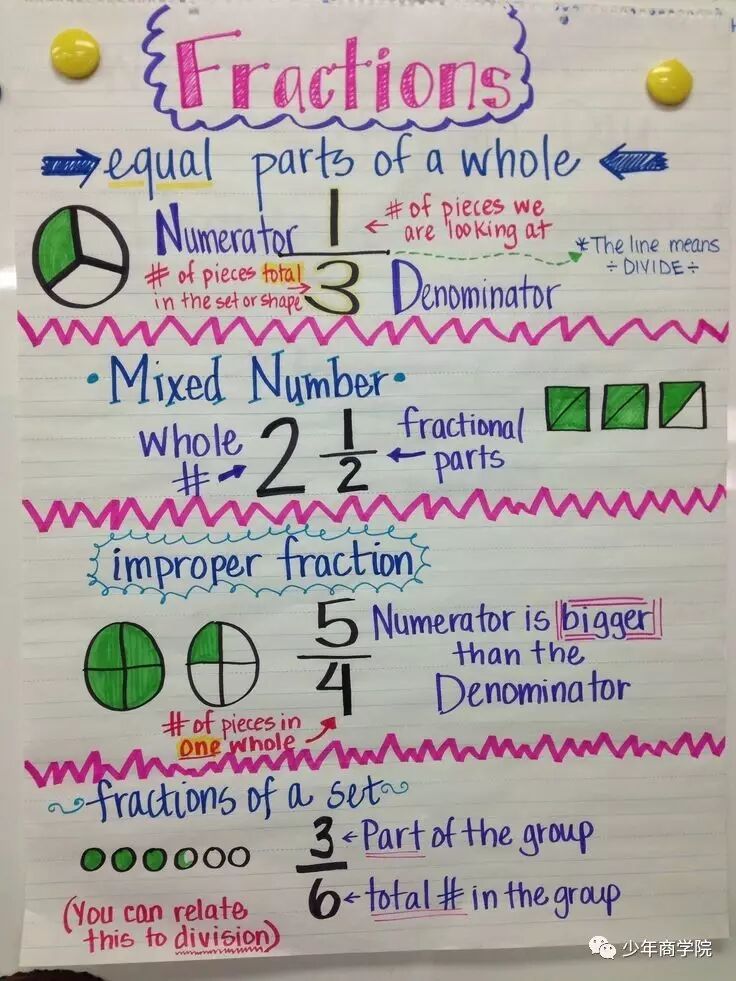 Fractions
equal parts of a whole
Numerator 1 ← # of pieces we
are looking at
*The line means
÷ DIVIDE ÷
# of pieces total
in the set or shape
3 Denominator
• Mixed Number •
Whole
#
2 1/2
fractional
parts
improper fraction
5/4
Numerator is bigger
than the
Denominator
# of pieces in
one whole
fractions of a set
3 ← Part of the group
6 ← total # in the group
(You can relate
this to division)
少年商学院